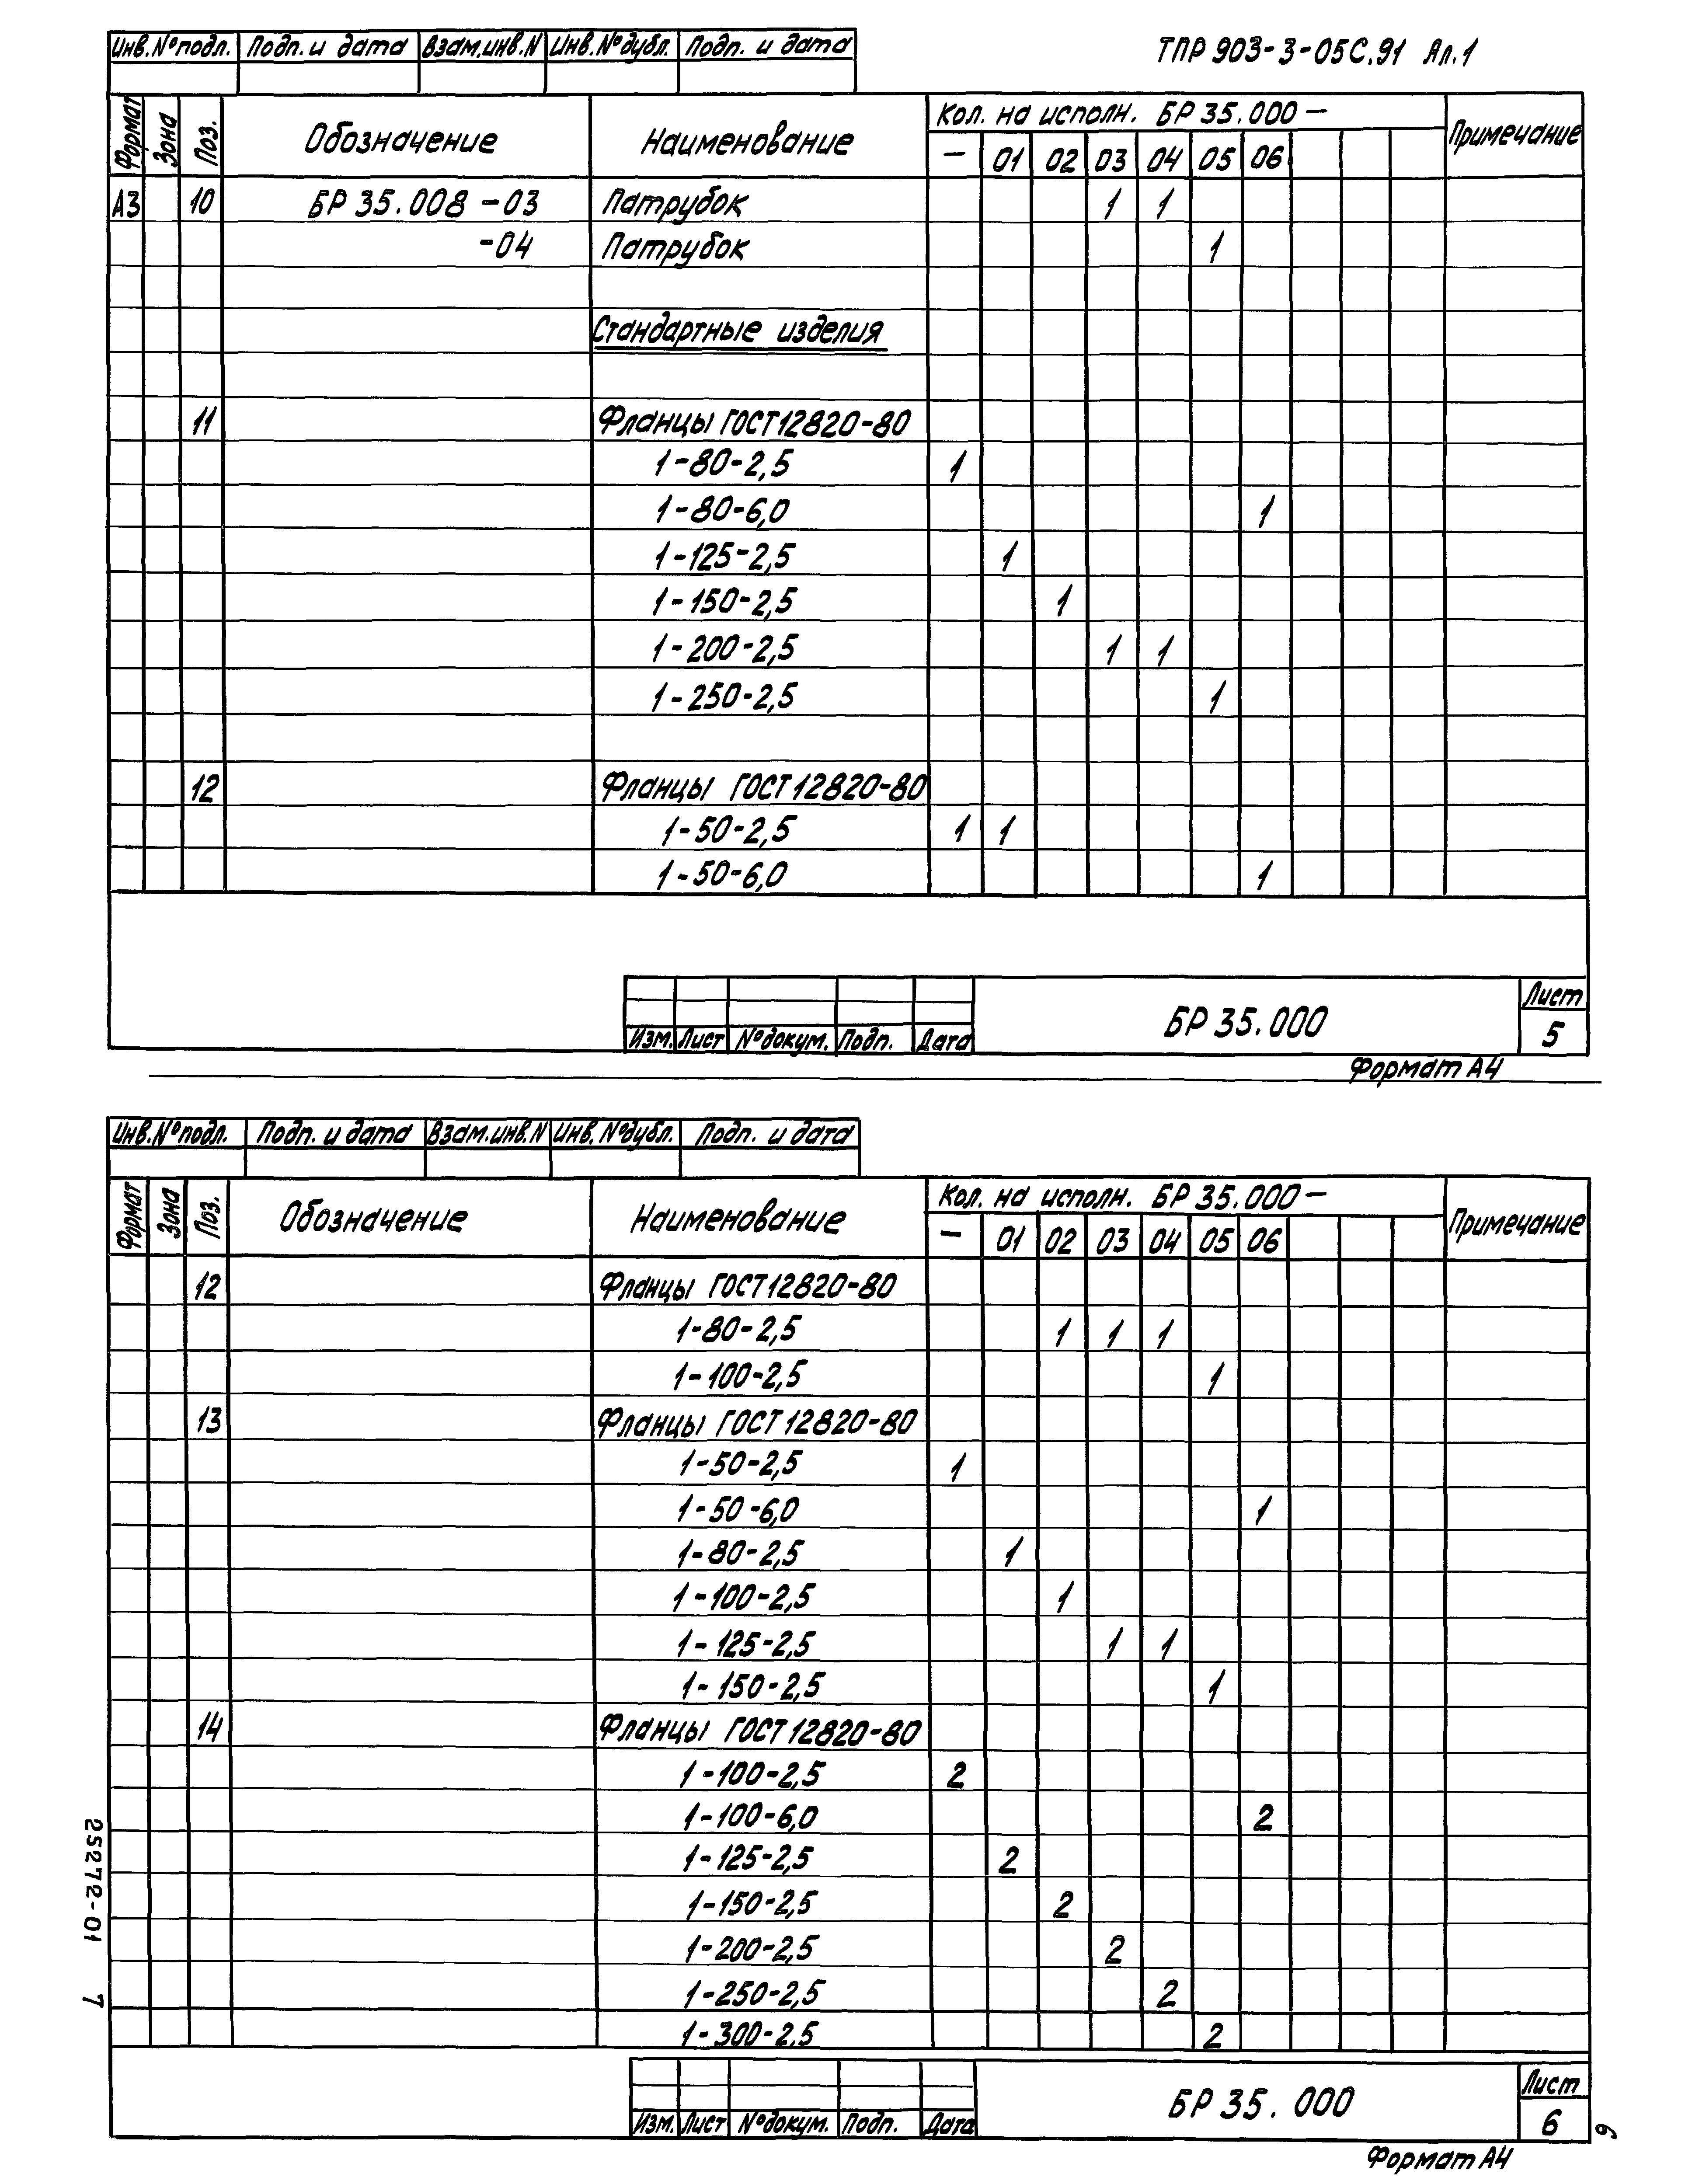 ТПР 903-3-05С.91 Ал.1
Инв.№подл. Подп. и дата Взам.инв.N Инв.№дубл. Подп. и дата
Формат Зона Поз. Обозначение Наименование Кол. на исполн. БР 35.000 — Примечание
— 01 02 03 04 05 06
А3 10 БР 35.008 -03 Патрубок 1 1
-04 Патрубок 1
Стандартные изделия
11 Фланцы ГОСТ 12820-80
1-80-2,5 1
1-80-6,0 1
1-125-2,5 1
1-150-2,5 1
1-200-2,5 1 1
1-250-2,5 1
12 Фланцы ГОСТ 12820-80
1-50-2,5 1 1
1-50-6,0 1
Изм. Лист №докум. Подп. Дата БР 35.000 Лист 5
Формат А4
Инв.№подл. Подп. и дата Взам.инв.N Инв.№дубл. Подп. и дата
Формат Зона Поз. Обозначение Наименование Кол. на исполн. БР 35.000 — Примечание
— 01 02 03 04 05 06
12 Фланцы ГОСТ 12820-80
1-80-2,5 1 1 1
1-100-2,5 1
13 Фланцы ГОСТ 12820-80
1-50-2,5 1
1-50-6,0 1
1-80-2,5 1
1-100-2,5 1
1-125-2,5 1 1
1-150-2,5 1
14 Фланцы ГОСТ 12820-80
1-100-2,5 2
1-100-6,0 2
1-125-2,5 2
1-150-2,5 2
1-200-2,5 2
1-250-2,5 2
1-300-2,5 2
Изм. Лист №докум. Подп. Дата БР 35.000 Лист 6
Формат А4
25272-01 7
6